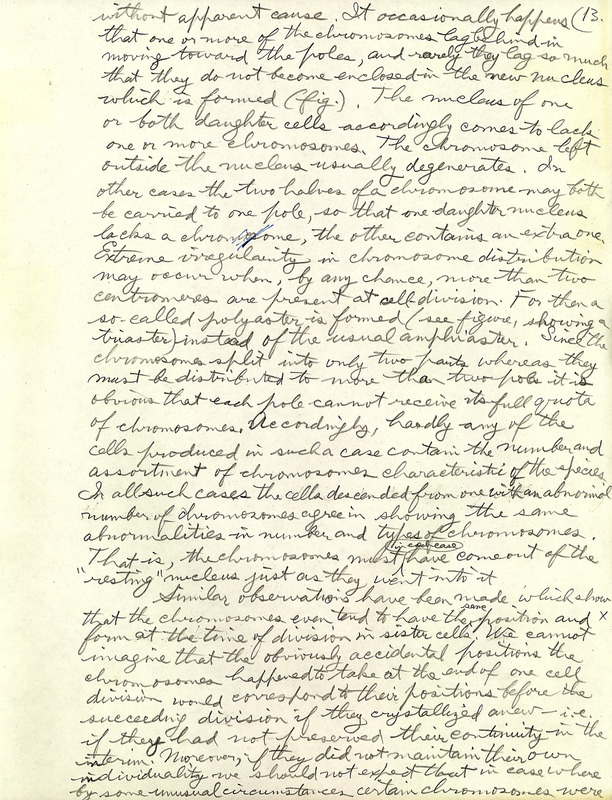 without apparent cause. It occasionally happens (13.
that one or more of the chromosomes lag behind in
moving toward the poles, and rarely they lag so much
that they do not become enclosed in the new nucleus
which is formed (fig.). The nucleus of one
or both daughter cells accordingly comes to lack
one or more chromosomes. The chromosome left
outside the nucleus usually degenerates. In
other cases the two halves of a chromosome may both
be carried to one pole, so that one daughter nucleus
lacks a chromosome, the other contains an extra one.
Extreme irregularity in chromosome distribution
may occur when, by any chance, more than two
centromeres are present at cell division. For then a
so-called polyaster is formed (see figure, showing a
triaster) instead of the usual amphiaster. Since the
chromosomes split into only two parts whereas they
must be distributed to more than two poles it is
obvious that each pole cannot receive its full quota
of chromosomes. Accordingly, hardly any of the
cells produced in such a case contain the number and
assortment of chromosomes characteristic of the species.
In all such cases the cells descended from one with an abnormal
number of chromosomes agree in showing the same
abnormalities in number and types of chromosomes.
in each case
That is, the chromosomes must have come out of the
"resting" nucleus just as they went into it
Similar observations have been made which show
that the chromosomes even tend to have the same position and x
form at the time of division in sister cells. We cannot
imagine that the obviously accidental positions the
chromosomes happened to take at the end of one cell
division would correspond to their positions before the
succeeding division if they crystallized anew – i.e.
if they had not preserved their continuity in the
interim. Moreover, if they did not maintain their own
individuality we should not expect that in case where
by some unusual circumstances certain chromosomes were